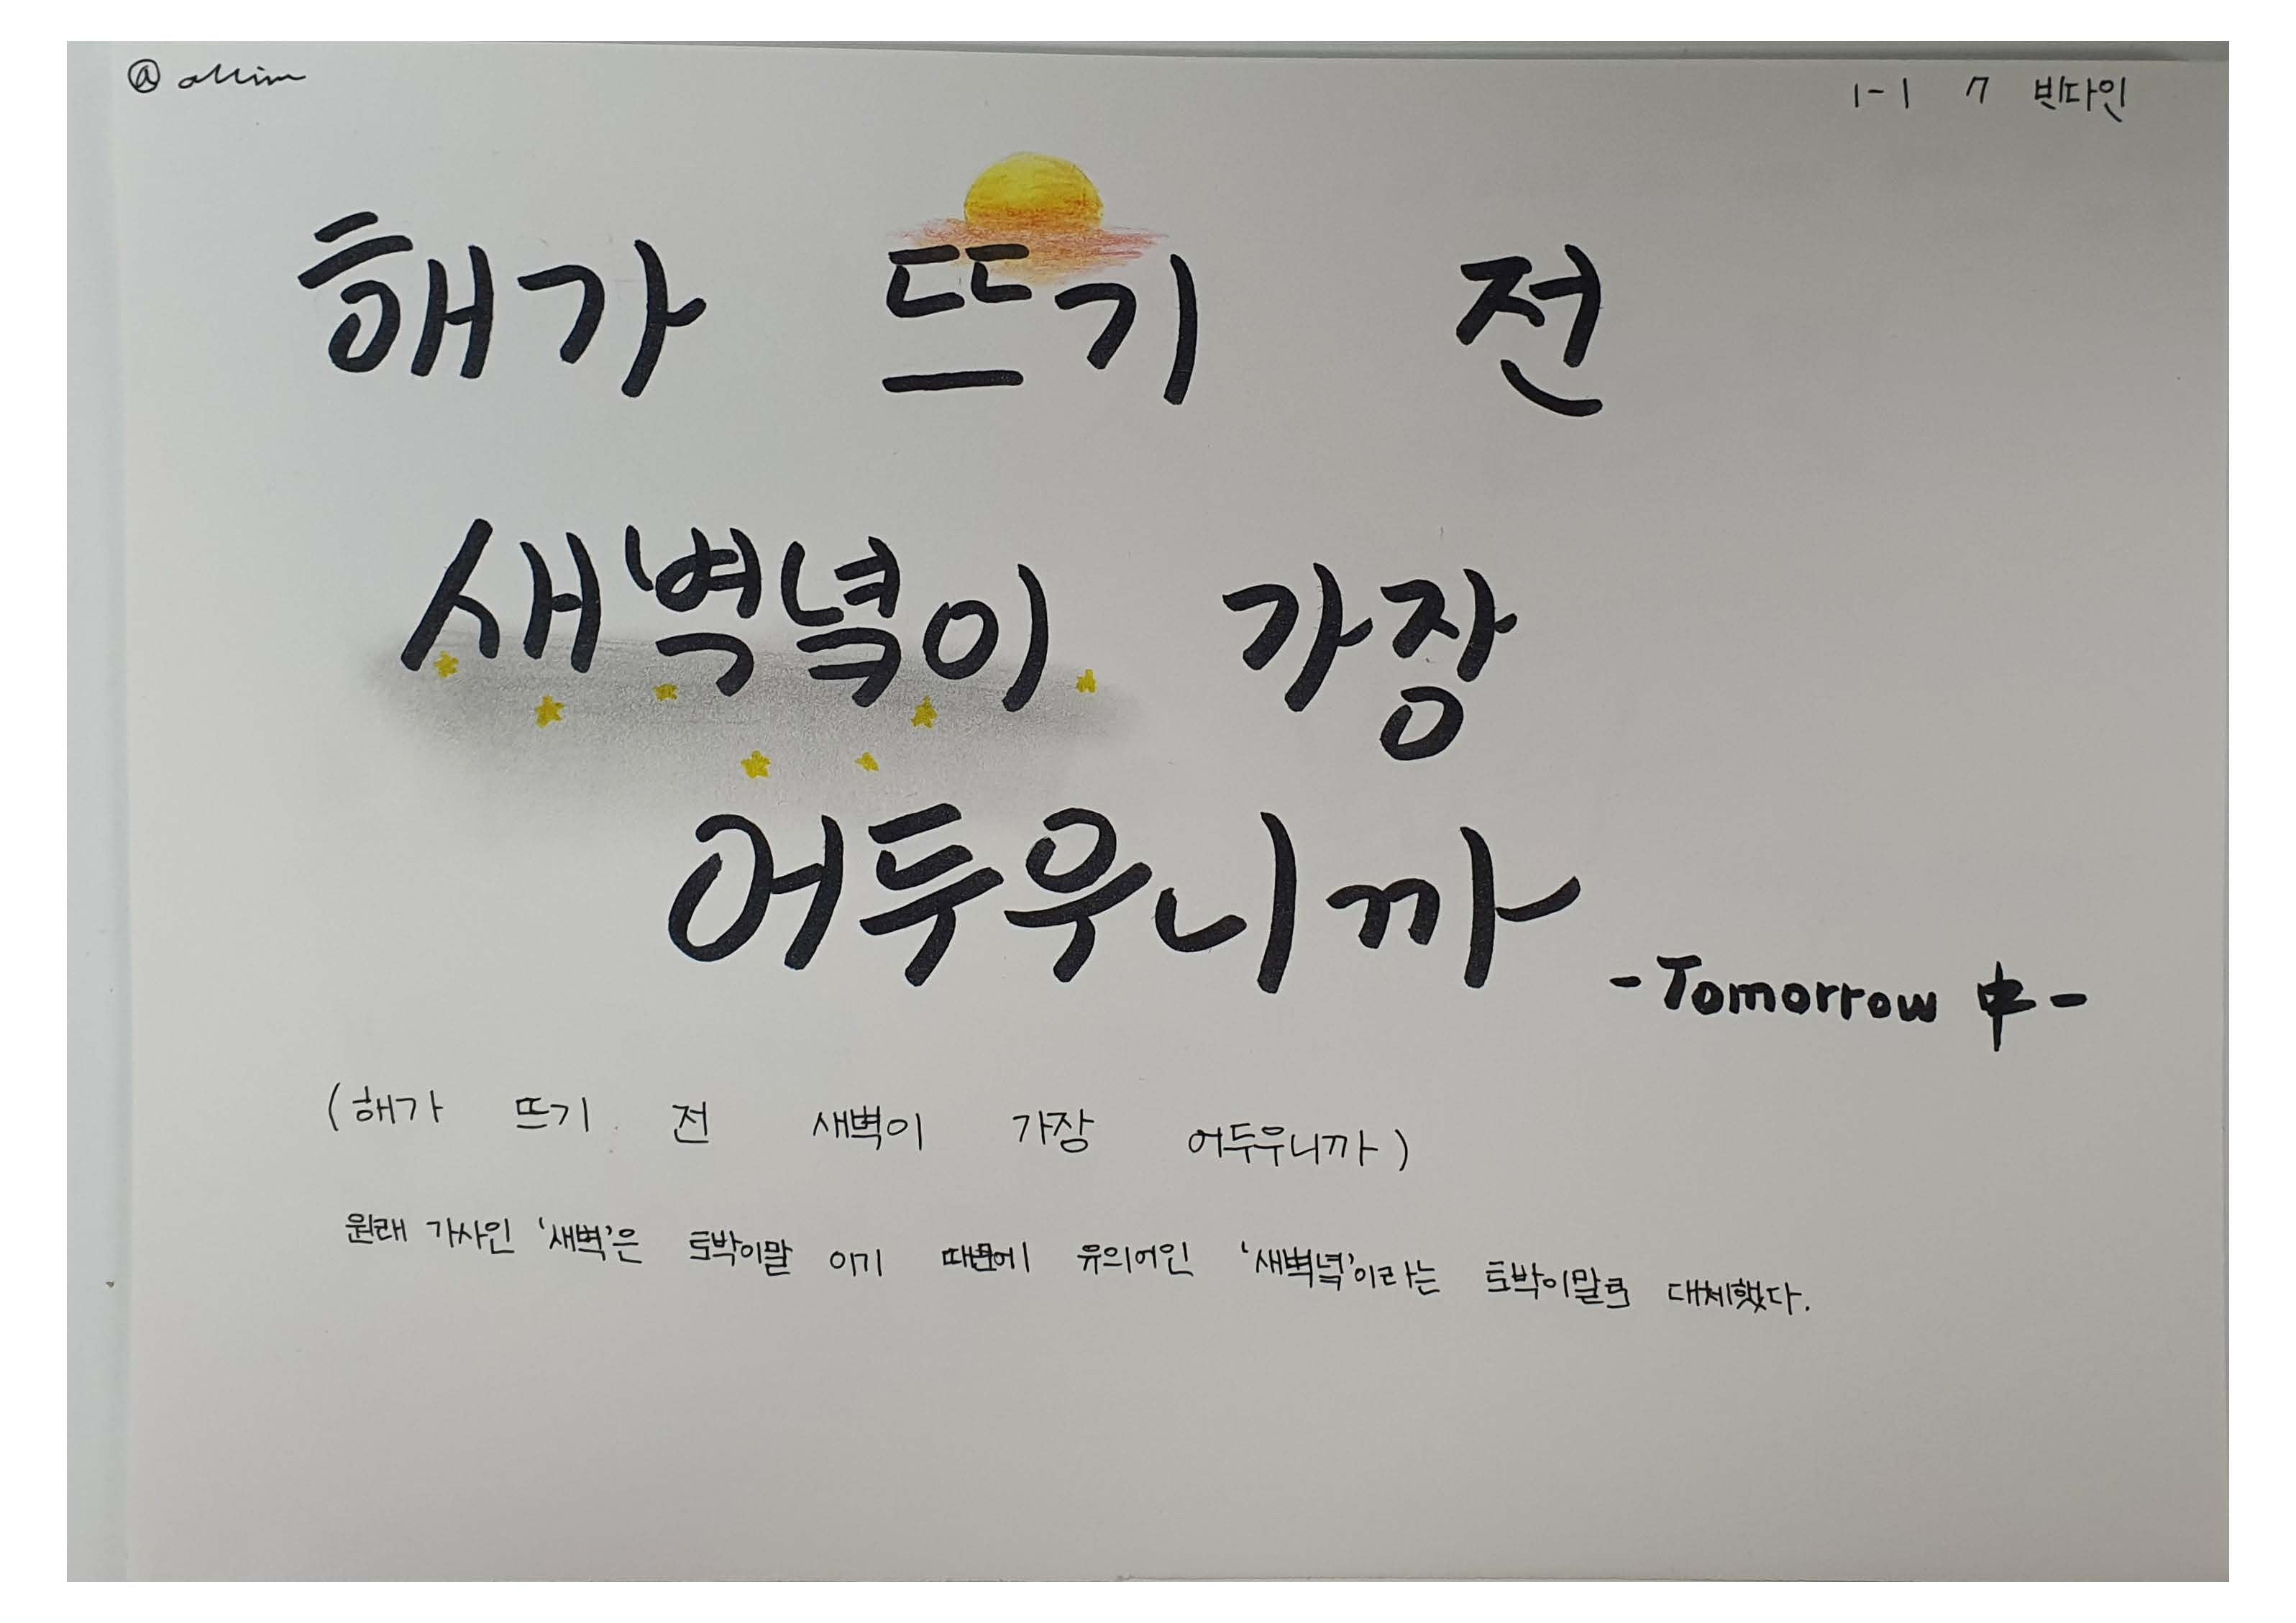 @ allim
1-1 7 빈다인
해가 뜨기 전
새벽녘이 가장
어두우니까
-Tomorrow 中-
(해가 뜨기 전 새벽이 가장 어두우니까)
원래 가사인 '새벽'은 토박이말 이기 때문에 유의어인 '새벽녘'이라는 토박이말로 대체했다.